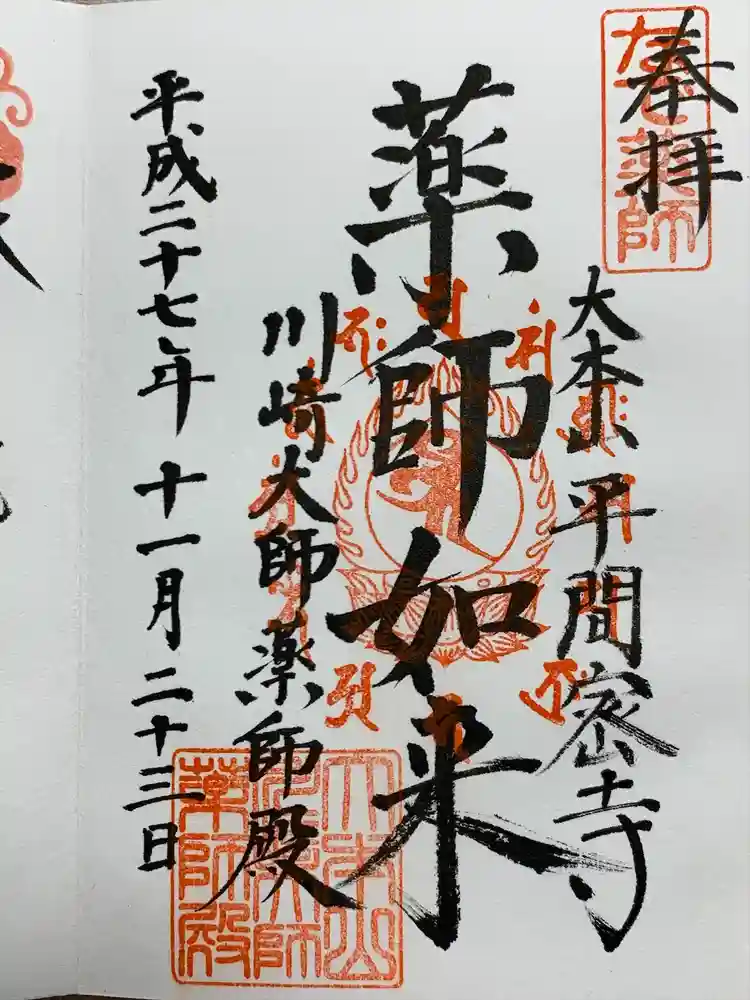 奉拝
大本山 平間密寺
薬師如来
川崎大師薬師殿
平成二十七年 十一月 二十三日
大本山
川崎大師
薬師殿